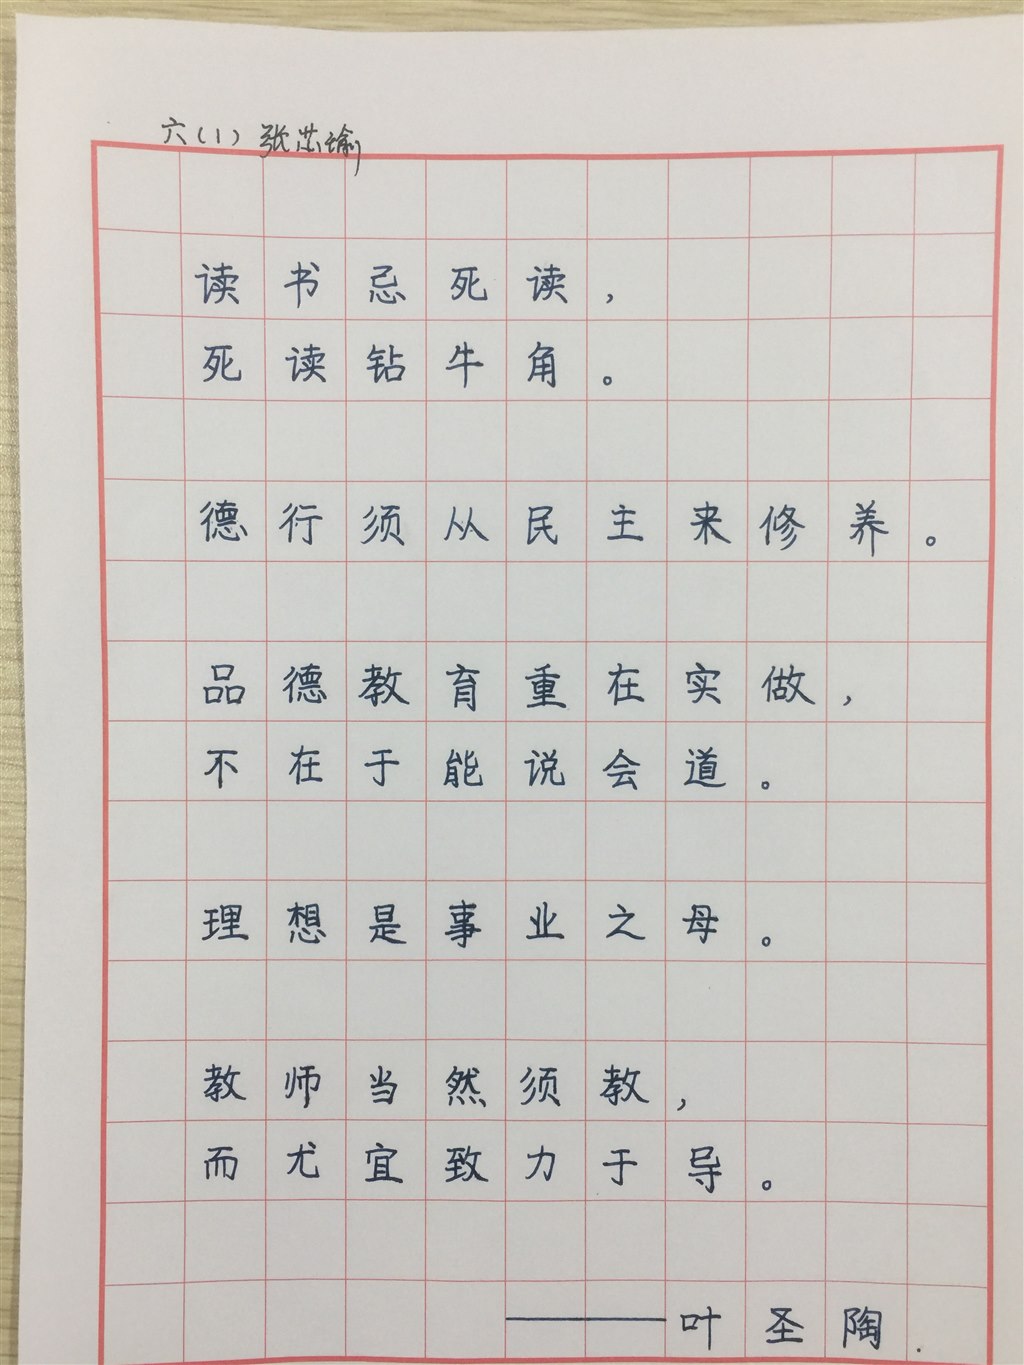 六(1) 张芯瑜
读书忌死读,
死读钻牛角。
德行须从民主来修养。
品德教育重在实做,
不在于能说会道。
理想是事业之母。
教师当然须教,
而尤宜致力于导。
——叶圣陶.